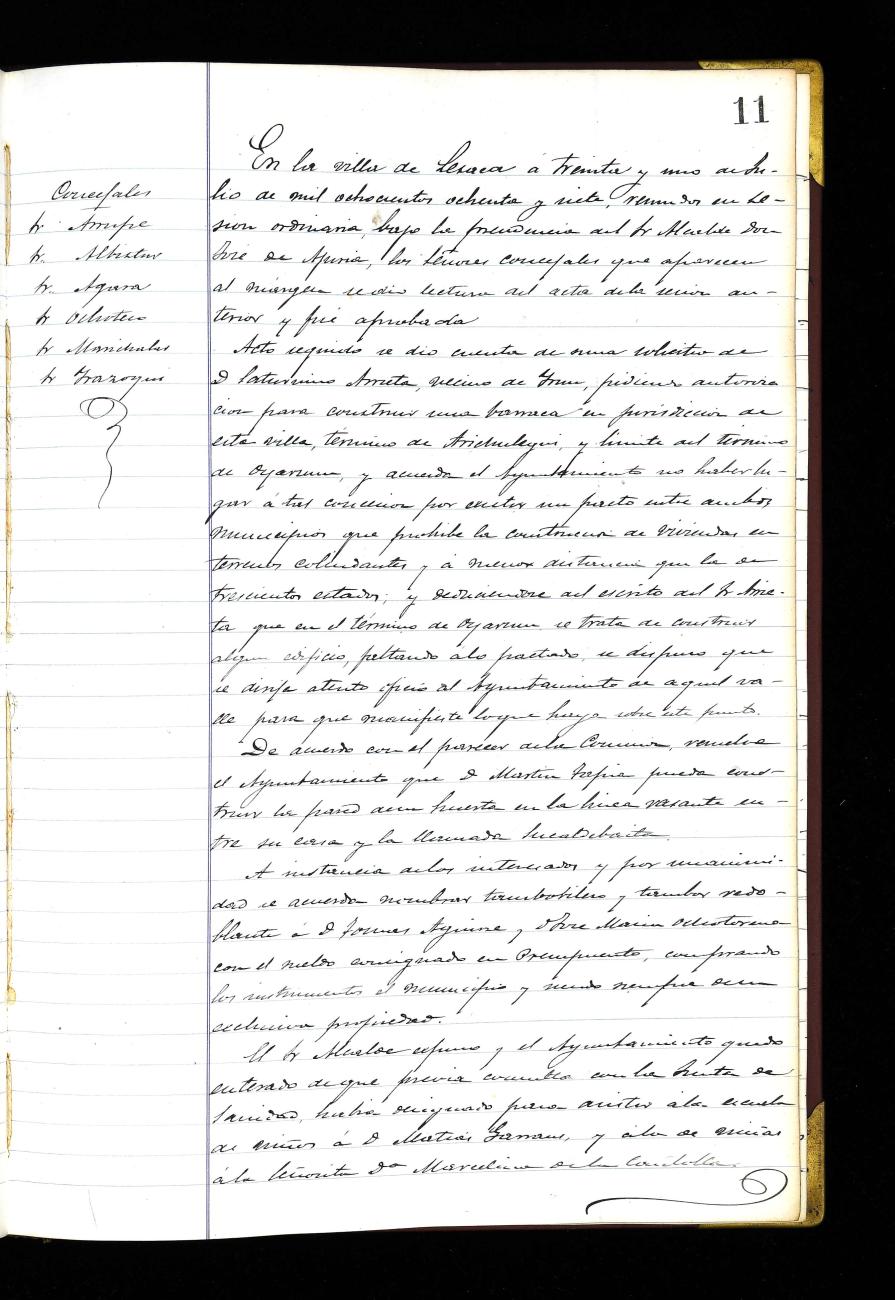 11
Concejales
Sr. Arrupe
Sr. Albistur
Sr. Agara
Sr. Ochoteco
Sr. Marichalar
Sr. Irazoqui
En la villa de Lesaca á treinta y uno de Ju-
lio de mil ochocientos ochenta y siete, reunidos en se-
sion ordinaria, bajo la presidencia del Sr Alcalde Don
José de Apiria, los Señores concejales que aparecen
al márgen se dio lectura del acta dela sesion an-
terior y fué aprobada
Acto seguido se dio cuenta de una solicitud de
D Saturnino Arrieta, vecino de Irun, pidiendo autoriza
cion para construir una barraca en jurisdicion de
esta villa, término de Arichulegui, y limite del término
de Oyarzun, y acuerda el Ayuntamiento no haber lu-
gar á tal concesion por existir un pacto entre ambos
municipios que prohibe la construccion de viviendas en
terrenos colindantes y á menor distancia que la de
trescientos estados; y deduciendose del escrito del Sr Arrie-
ta que en el término de Oyarzun se trata de construir
algun edificio, faltando álo pactado, se dispuso que
se dirija atento oficio al Ayuntamiento de aquel va-
lle para que manifieste loque haya sobre este punto.
De acuerdo con el parecer dela Comision, resuelve
el Ayuntamiento que D Martin Tapia pueda cons-
truir la pared deun huerta en la linea rasante en-
tre su casa y la llamada
A instancia delos interesados y por unanimi-
dad se acuerda nombrar tamborilero y tambor redo-
blante á D Tomas Aguirre y D Jose Maria Ochotorena
con el sueldo consignado en Presupuesto, comprando
los instrumentos el municipio y siendo siempre desu
exclusiva propiedad.
El Sr Alcalde espuso y el Ayuntamiento quedó
enterado de que previa consulta con la Junta de
Sanidad, habia designado para asistir ála escuela
de niños á D Matias Garraus, y ála de niñas
ála Señorita Dª Marcelina de la